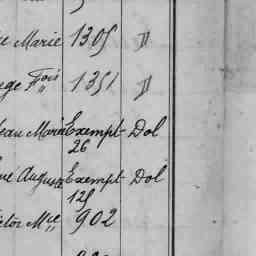 Marie 1305 "
Fois 1351 "
Jean Marie Exempt Dol
26
Auguste Exempt Dol
125
Mce 902